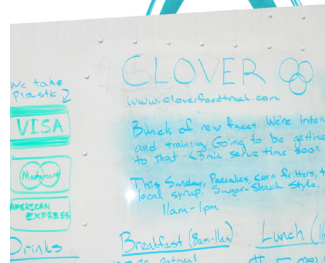 We take
Plastic
VISA
Mastercard
AMERICAN
EXPRESS
Drinks
CLOVER
www.cloverfoodtruck.com
Bunch of new faces. We're inter
and training Going to be getting
to that <3min serve time soon
This Sunday, Pancakes, Corn Fritters,
local syrup. Sugar-Shack Style.
11am-1pm
Breakfast (8am-11am)
Lunch (11
oatmeal